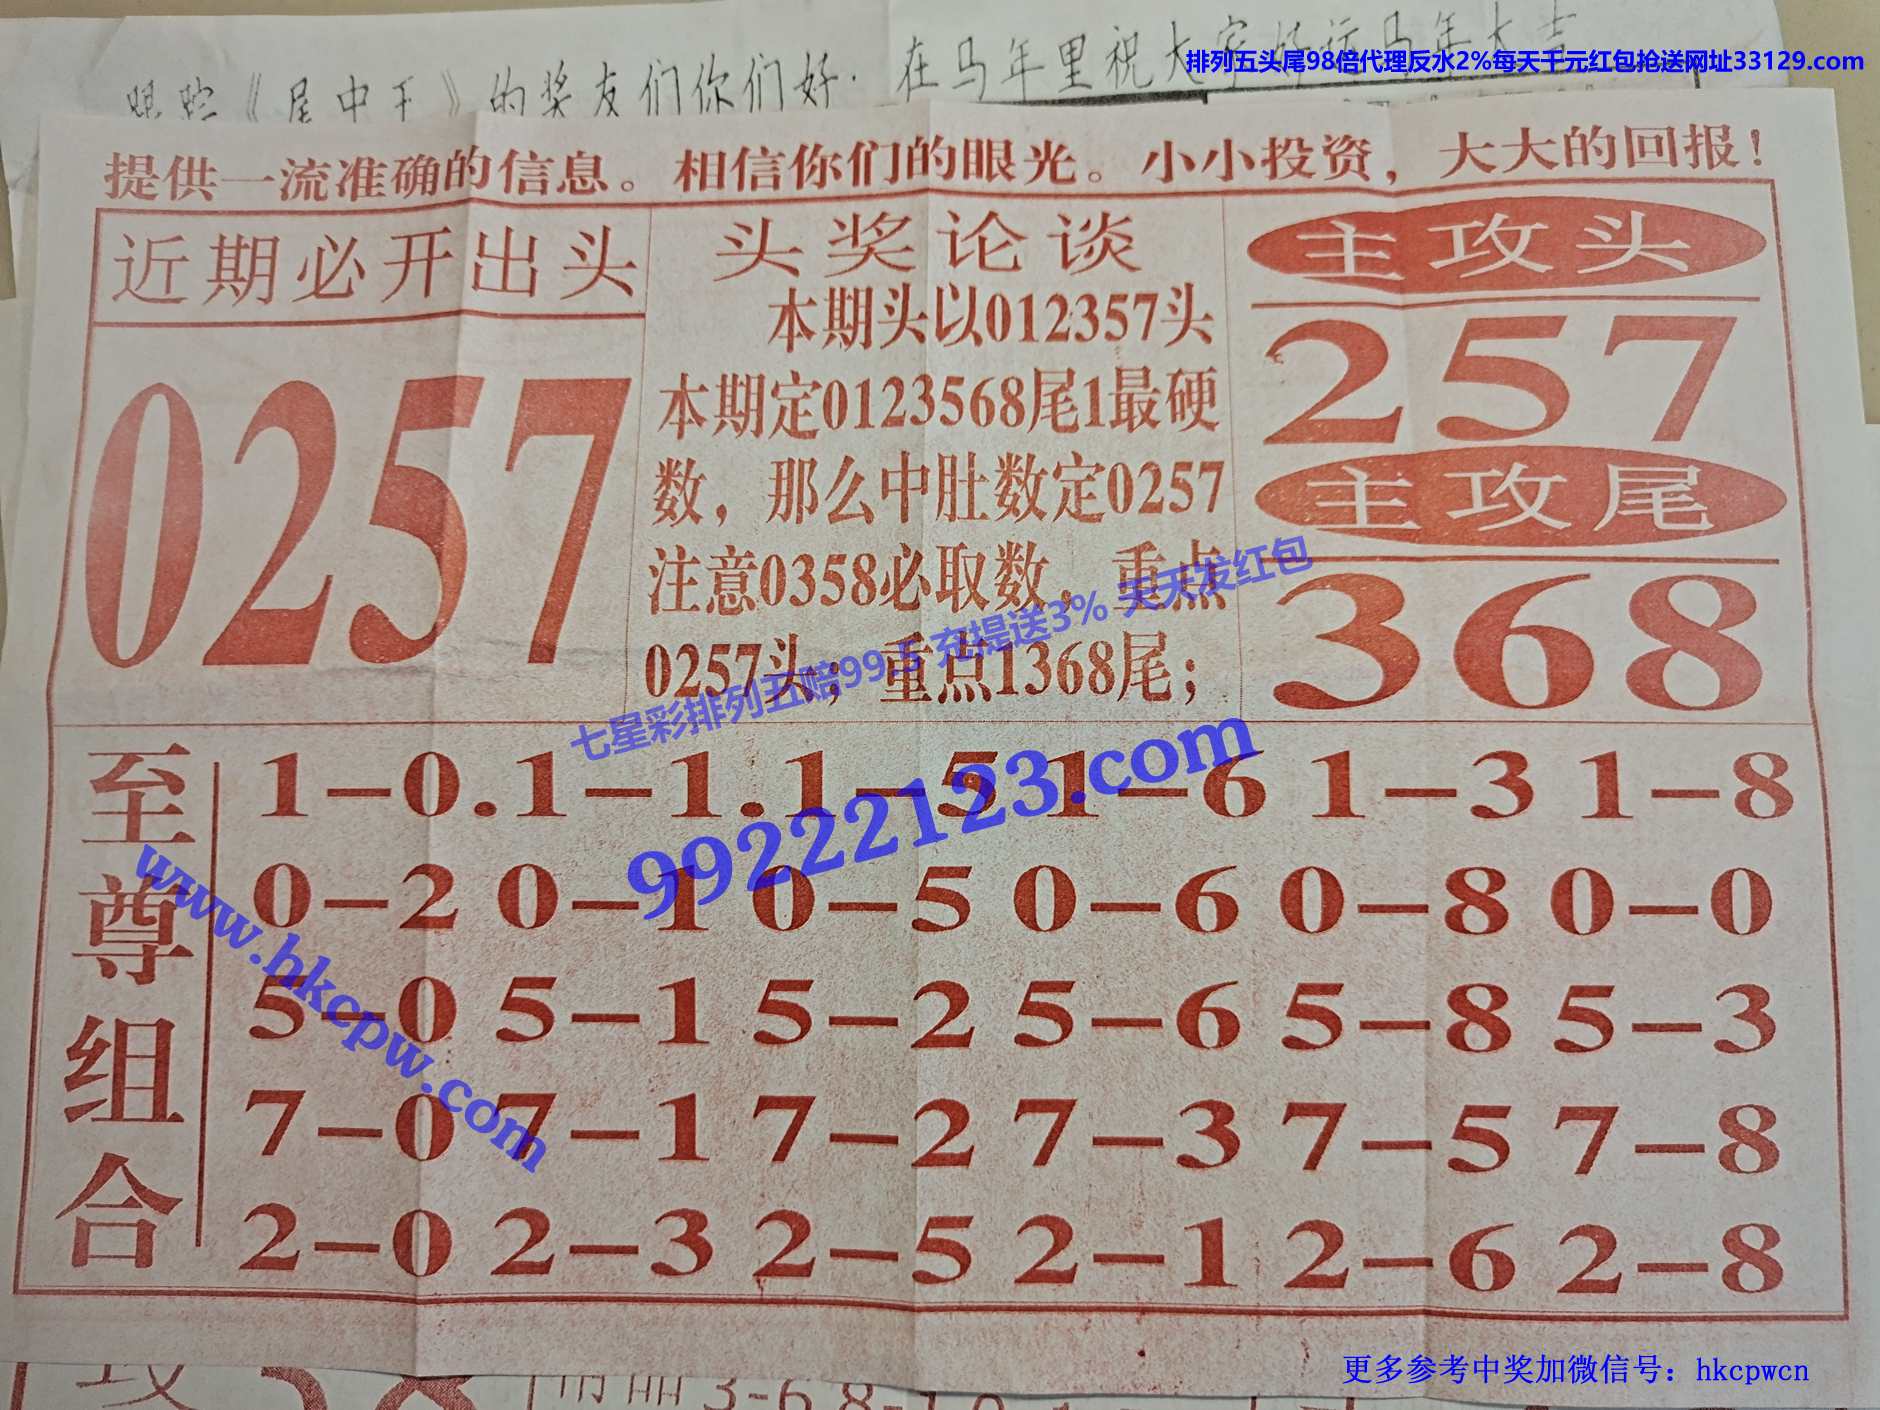 排列五头尾98倍代理反水2%每天千元红包抢送网址33129.com
跟踪《尾中王》的奖友们你们好.在马年里祝大家好运马年大吉
提供一流准确的信息。相信你们的眼光。小小投资，大大的回报！
近期必开出头
0257
头奖论谈
本期头以012357头
本期定0123568尾1最硬
数，那么中肚数定0257
注意0358必取数，重点
0257头；重点1368尾；
主攻头
257
主攻尾
368
七星彩排列五赔99.5 充提送3% 天天发红包
99222123.com
www.hkcpw.com
至尊组合
1-0.1-1.1-5 1-6 1-3 1-8
0-2 0-1 0-5 0-6 0-8 0-0
5-0 5-1 5-2 5-6 5-8 5-3
7-0 7-1 7-2 7-3 7-5 7-8
2-0 2-3 2-5 2-1 2-6 2-8
更多参考中奖加微信号：hkcpwcn